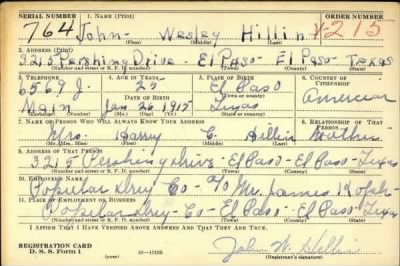 SERIAL NUMBER 1. NAME (Print) ORDER NUMBER
764 John Wesley Hillin V215
(First) (Middle) (Last)
2. ADDRESS (Print)
3215 Pershing Drive - El Paso - El Paso - Texas
(Number and street or R. F. D. number) (Town) (County) (State)
3. TELEPHONE 4. AGE IN YEARS 5. PLACE OF BIRTH 6. COUNTRY OF CITIZENSHIP
6569 J. 25 El Paso
Main Jan 26 1915 Texas American
7. NAME OF PERSON WHO WILL ALWAYS KNOW YOUR ADDRESS 8. RELATIONSHIP OF THAT PERSON
Mrs. Harry C. Hillin Mother
(Mr., Mrs., Miss) (First) (Middle) (Last)
9. ADDRESS OF THAT PERSON
3215 Pershing drive - El Paso - El Paso - Texas
(Number and street or R. F. D. number) (Town) (County) (State)
10. EMPLOYER'S NAME
Popular Dry Co - c/o Mr. James
11. PLACE OF EMPLOYMENT OR BUSINESS
Popular Dry - Co - El Paso - El Paso - Texas
(Number and street or R. F. D. number) (Town) (County) (State)
I AFFIRM THAT I HAVE VERIFIED ABOVE ANSWERS AND THAT THEY ARE TRUE.
REGISTRATION CARD
D. S. S. Form 1 (over) John W. Hillin
(Registrant's signature)